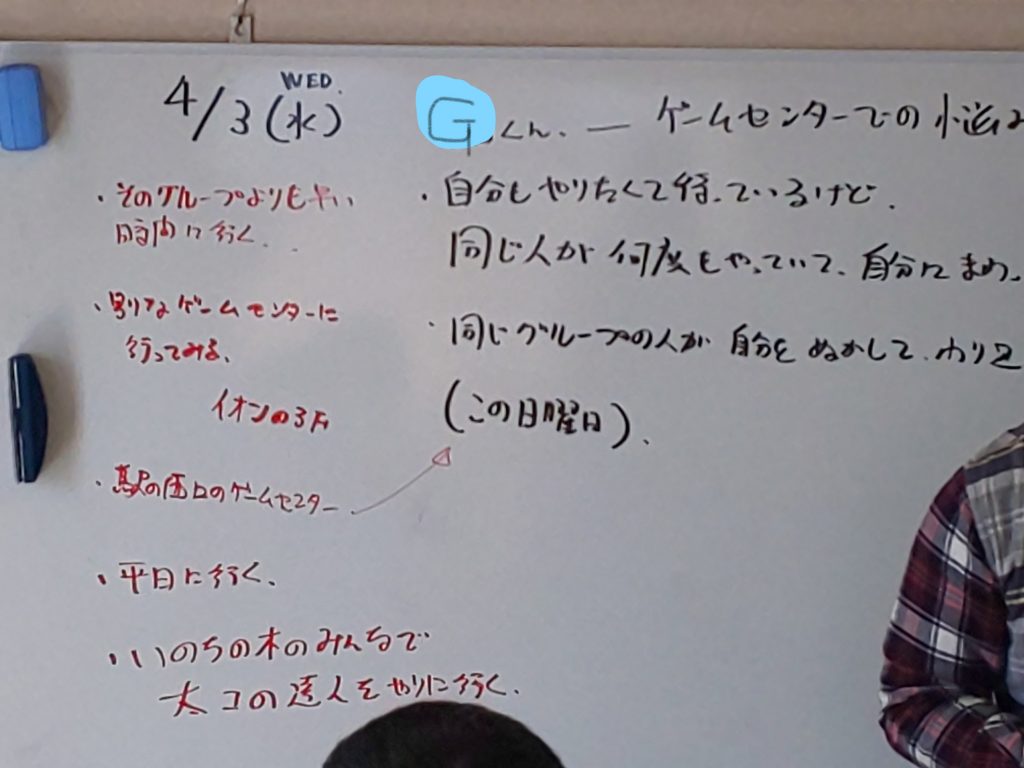 WED.
4/3(水)
Gくん. ― ゲームセンターでの悩み
・自分もやりたくて待っているけど.
同じ人が何度もやっていて、自分に
・同じグループの人が自分をぬかして、わり込
(この日曜日).
・そのグループよりも早い
時間に行く.
・別なゲームセンターに
行ってみる、
イオンの3F
・駅の西口のゲームセンター
・平日に行く.
・いのちの木のみんなで
太コの達人をやりに行く.